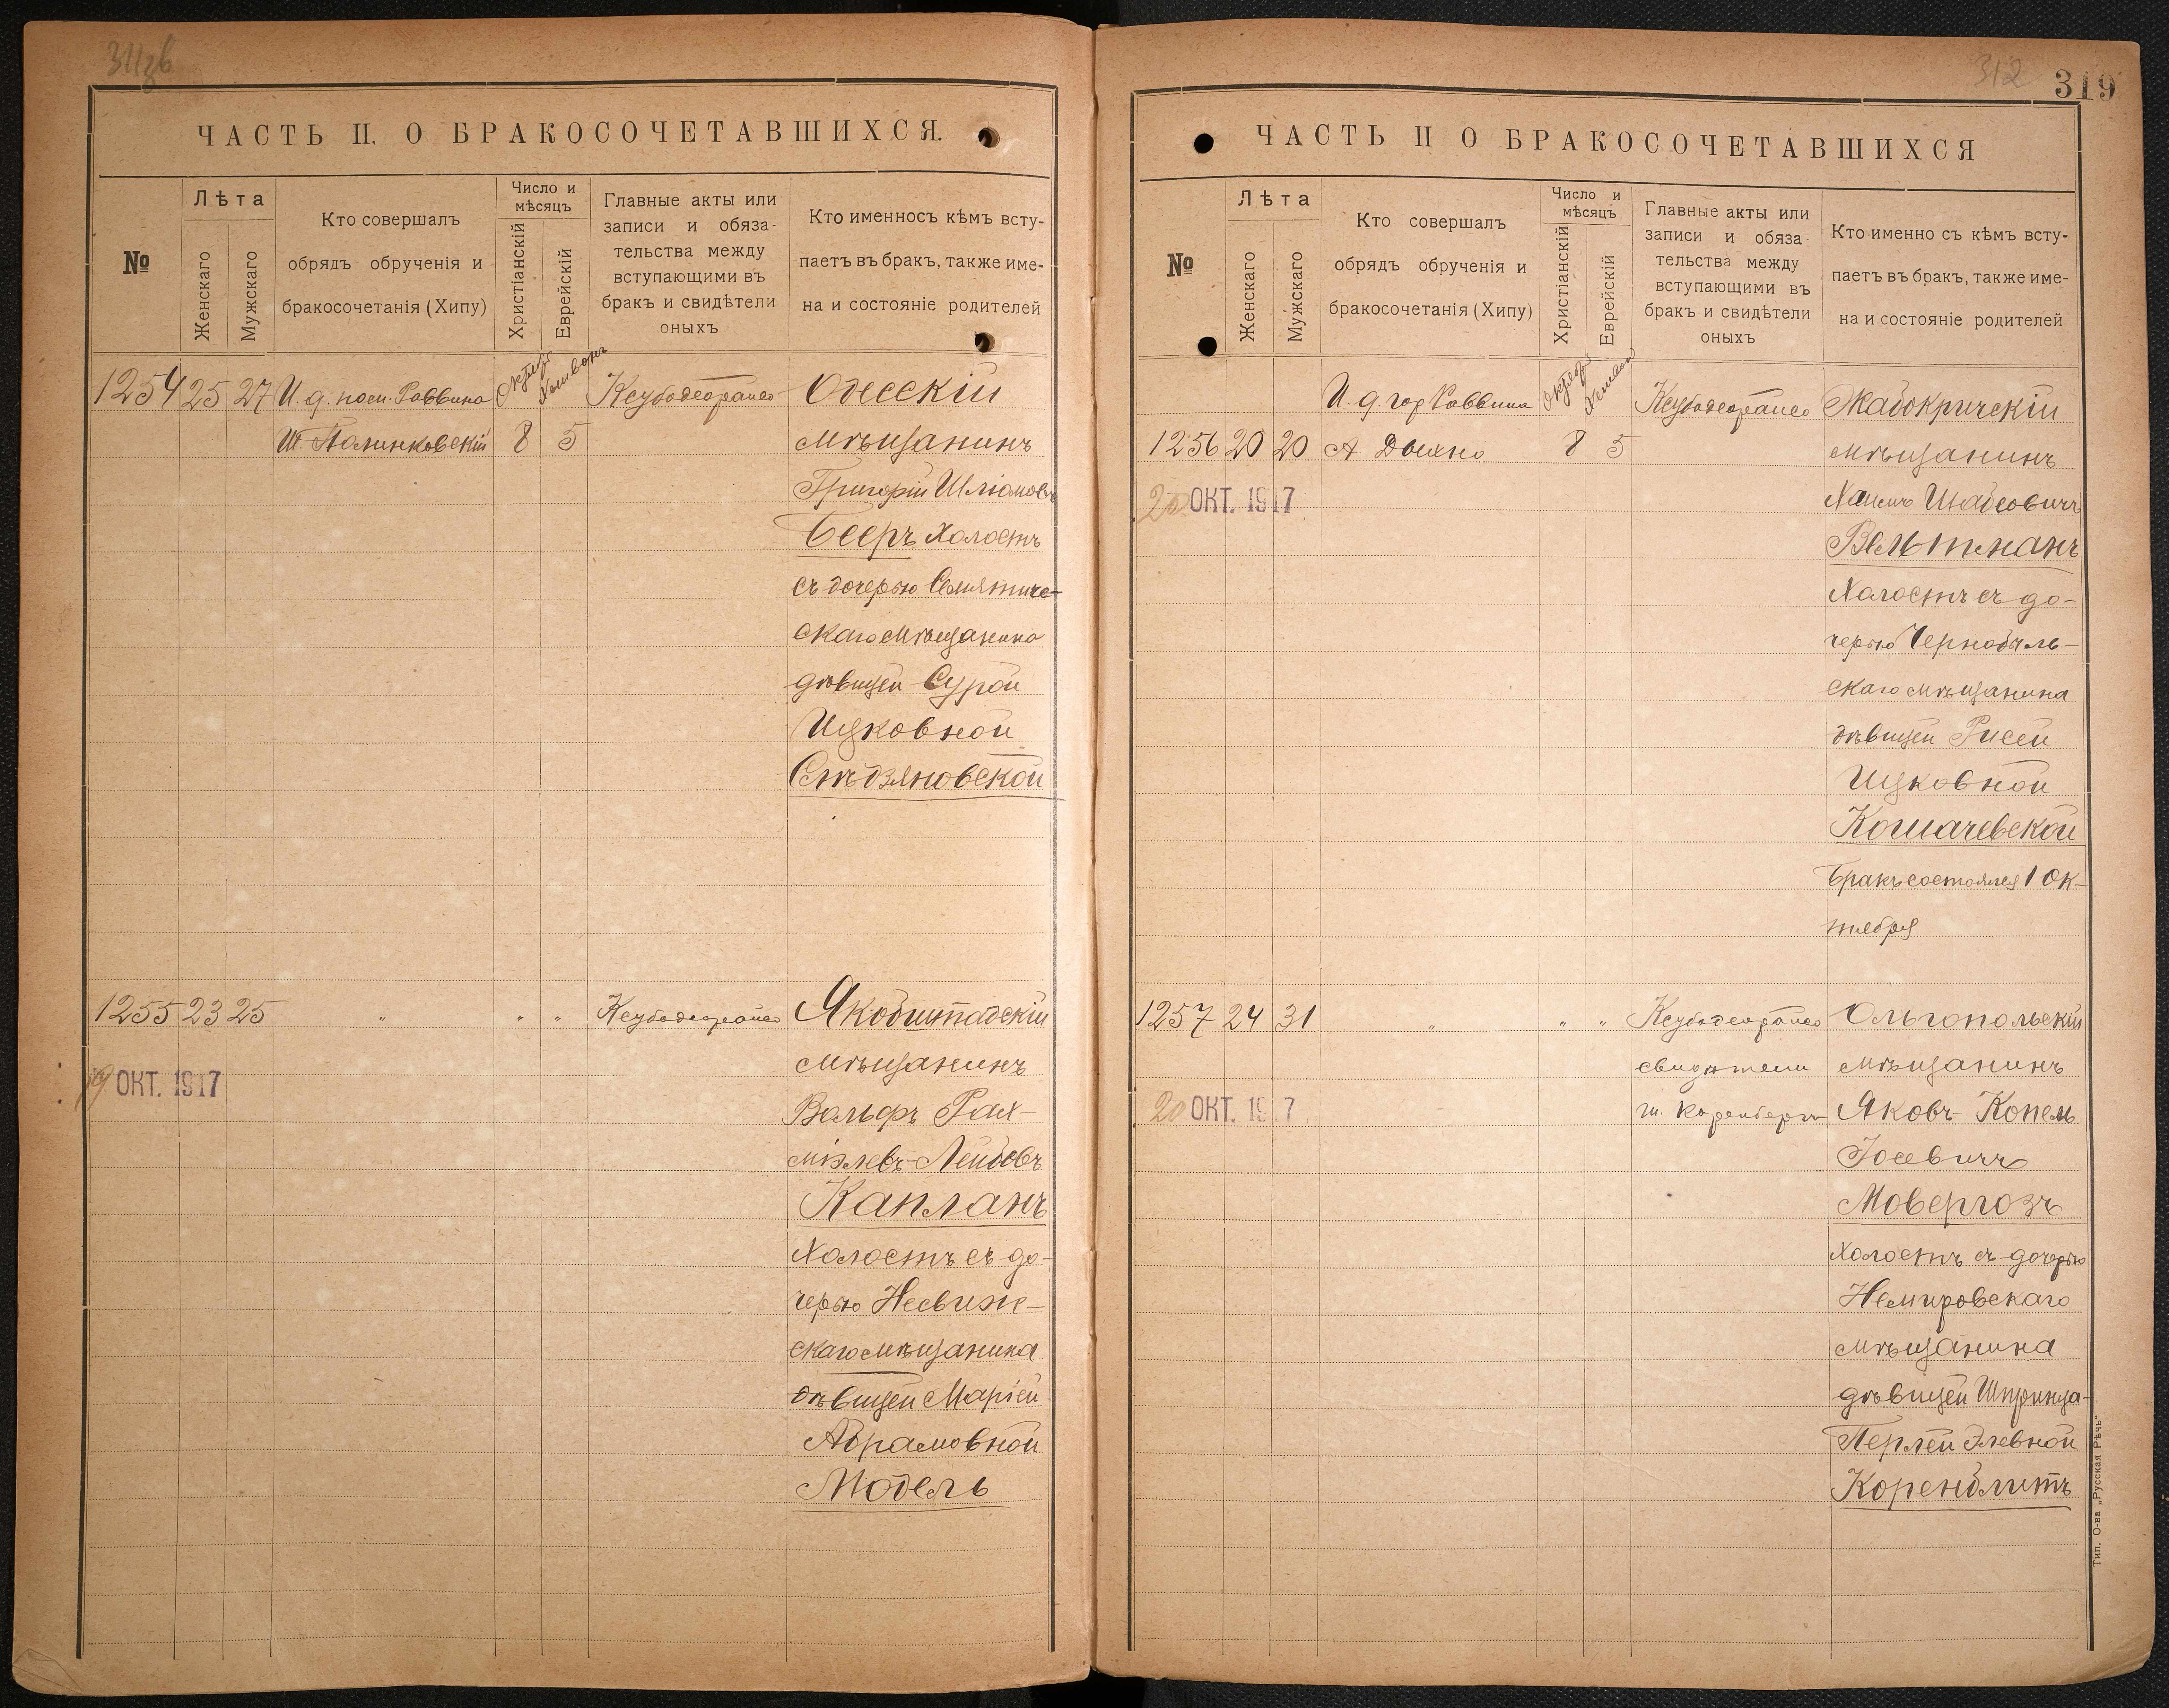 311
ЧАСТЬ II. О БРАКОСОЧЕТАВШИХСЯ.
№
Лѣта
Женскаго
Мужскаго
Кто совершалъ
обрядъ обрученія и
бракосочетанія (Хипу)
Число и
мѣсяцъ
Христіанскій
Еврейскій
Главные акты или
записи и обяза-
тельства между
вступающими въ
бракъ и свидѣтели
оныхъ
Кто именносъ кѣмъ всту-
паетъ въ бракъ, также име-
на и состояніе родителей
1254 25 27 И. д. пом. Раввина Кеубодеорайсо Одесскій
8 5 мѣщанинъ
Григорій Шліомовъ
Бееръ холостъ
съ дочерью Семятиче-
скаго мѣщанина
дѣвицей Сурой
Ицковной
Смѣдзяновской
1255 23 25 " " " Кеубодеорайсо Якобштадскій
мѣщанинъ
19 ОКТ. 1917
Вольфъ Рах-
міэлевъ-Лейбовъ
Капланъ
Холостъ съ до-
черью Несвиж-
скаго мѣщанина
дѣвицей Маріей
Абрамовной
Модель
312
319
ЧАСТЬ II О БРАКОСОЧЕТАВШИХСЯ
№
Лѣта
Женскаго
Мужскаго
Кто совершалъ
обрядъ обрученія и
бракосочетанія (Хипу)
Число и
мѣсяцъ
Христіанскій
Еврейскій
Главные акты или
записи и обяза
тельства между
вступающими въ
бракъ и свидѣтели
оныхъ
Кто именно съ кѣмъ всту-
паетъ въ бракъ, также име-
на и состояніе родителей
И. д. гор Раввина Кеубодеорайсо Жабокричскій
1256 20 20 А 8 5 мѣщанинъ
20 ОКТ. 1917
Хаимъ Шабсовичъ
Вельтманъ
Холостъ съ до-
черью Чернобыль-
скаго мѣщанина
дѣвицей Рисей
Ицковной
Кошачевской
Бракъ состоялся 1 Ок-
тября
1257 24 31 " " " Кеубодеорайсо Ольгопольскій
свидѣтели мѣщанинъ
20 ОКТ. 1917
Яковъ-Копель
Іосевичъ
Мовергозъ
холостъ съ дочерью
Немировскаго
мѣщанина
дѣвицей Шпринца-
Перлей Элевной
Коренблитъ
Тип. О-ва „Русская Рѣчь“